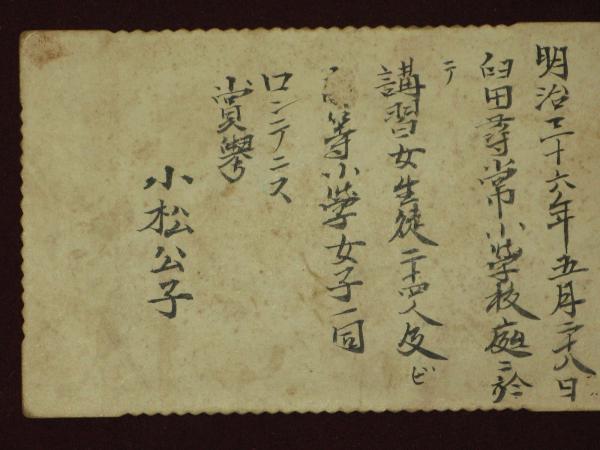 明治三十六年五月二十八日
臼田尋常小學校庭ニ於
テ
講習女生徒二十四人及ビ
等小學女子一同
ロンテニス
賞
小松公子